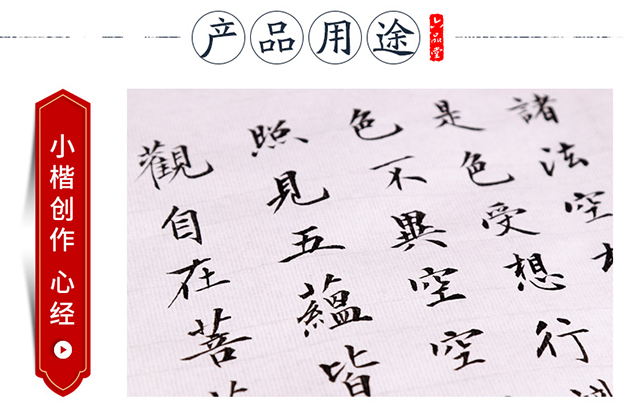 产品用途
六品堂
小楷创作 心经
觀自在菩
照見五蘊皆
色不異空空
是色受想行
諸法空